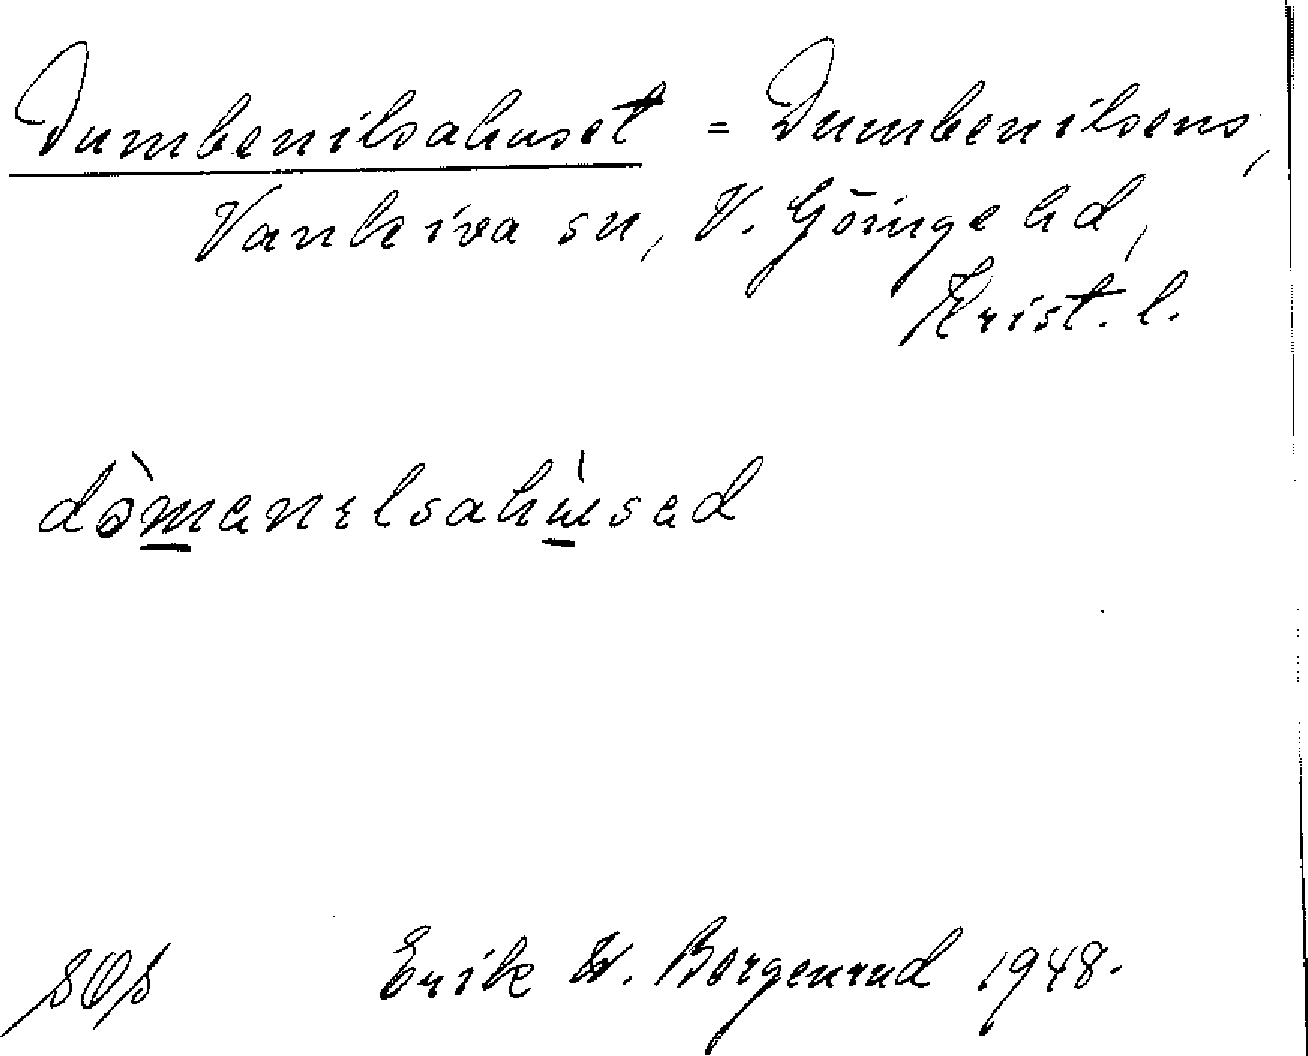 Dumbenilsahuset = Dumbenilsens,
Vankiva sn, V. Göinge hd,
Krist. l.
dòmanelsahúsad
SOS Erik W. Borgenrud 1948.